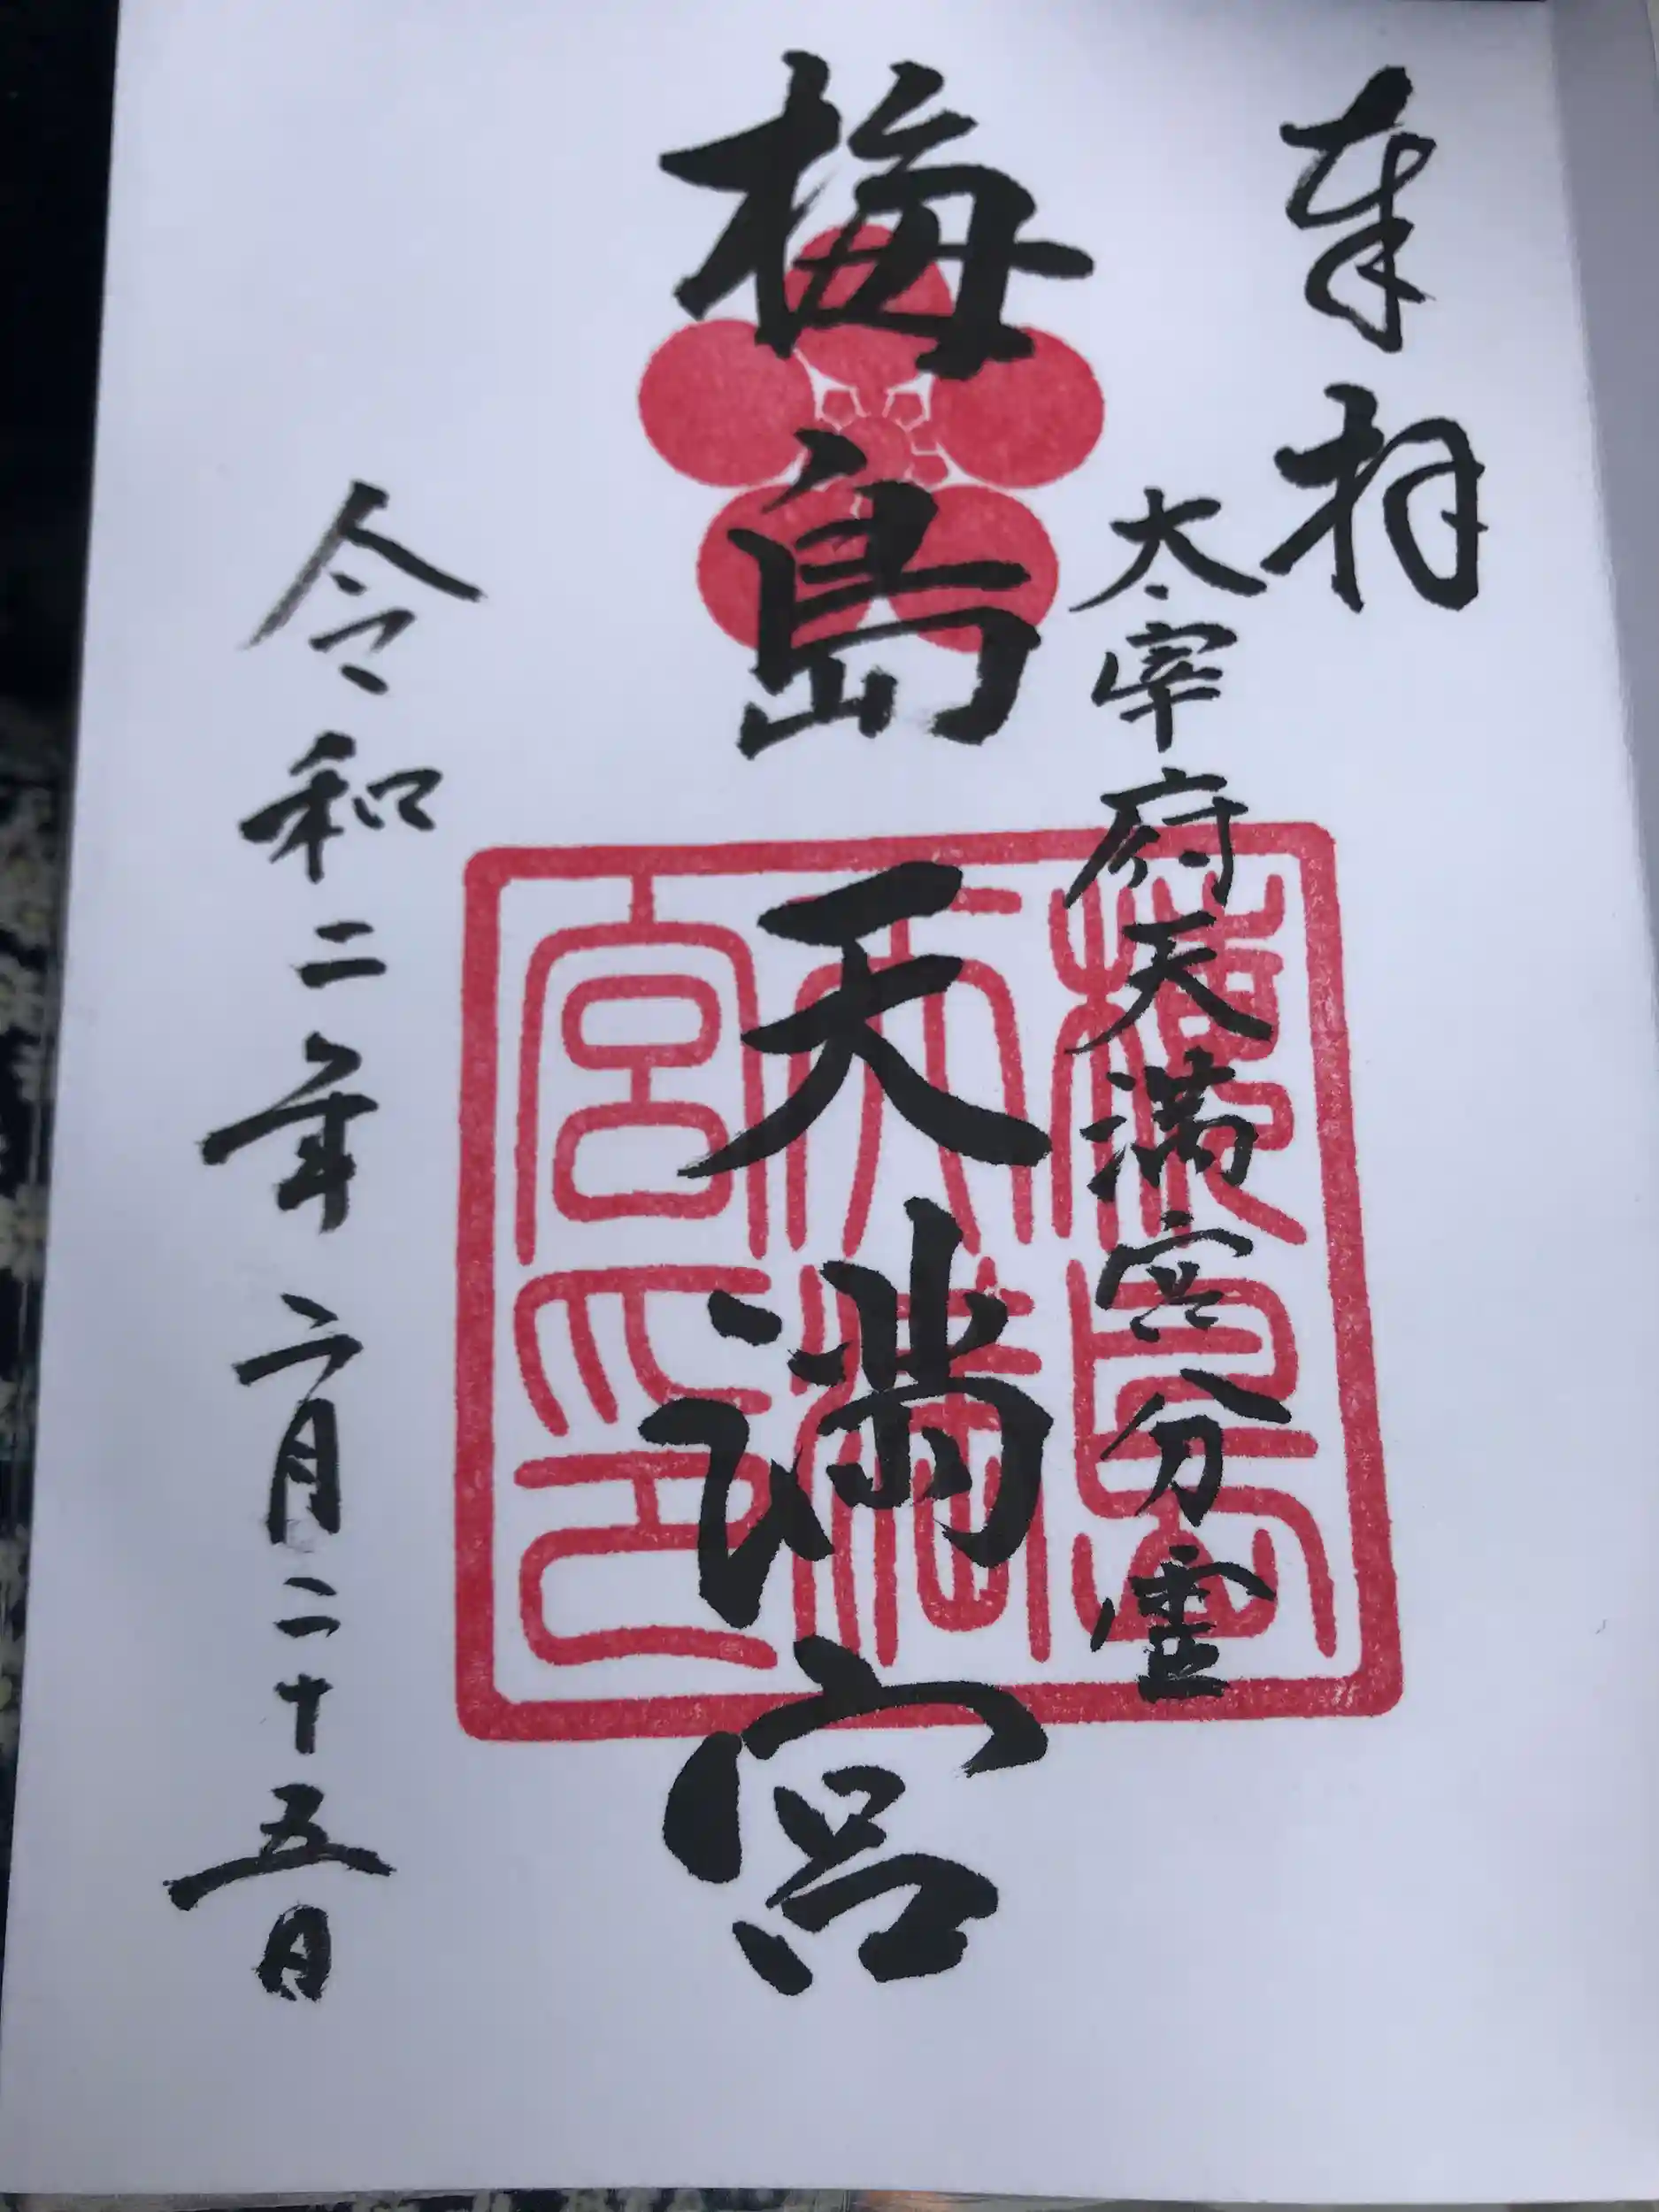 奉拝
太宰府天満宮分霊
梅島天満宮
令和二年 月二十五日
梅島
天満
宮印